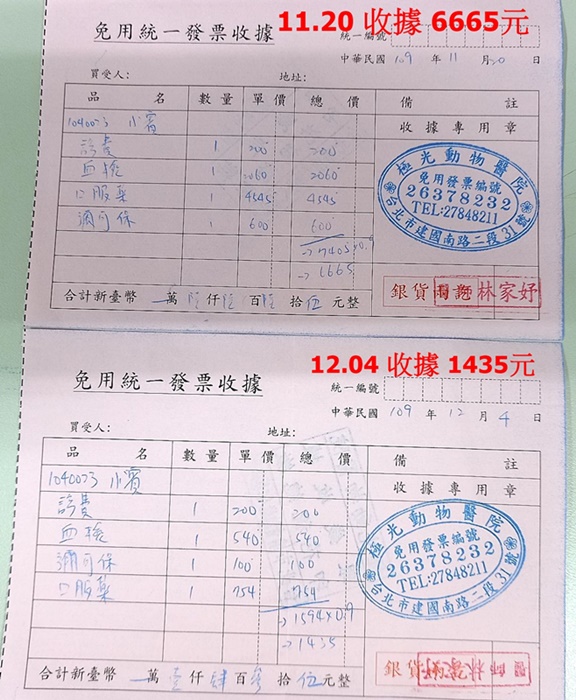 免用統一發票收據 11.20 收據 6665元
統一編號
中華民國 109 年 11 月 20 日
買受人: 地址:
品 名 數量 單價 總價 備 註
1040023 小賓 收據專用章
診費 1 200 200
血檢 1 2060 2060
口服藥 1 4545 4545
瀰可保 1 600 600
→7405×0.9
→6665
極光動物醫院
免用發票編號
26378232
TEL:27848211
台北市建國南路二段31號
合計新臺幣 萬 陸 仟 陸 百 陸 拾 伍 元整
銀貨兩訖 林家妤
12.04 收據 1435元
免用統一發票收據
統一編號
中華民國 109 年 12 月 4 日
買受人: 地址:
品 名 數量 單價 總價 備 註
1040023 小賓 收據專用章
診費 1 200 200
血檢 1 540 540
瀰可保 1 100 100
口服藥 1 754 754
→1594×0.9
→1435
極光動物醫院
免用發票編號
26378232
TEL:27848211
台北市建國南路二段31號
合計新臺幣 萬 壹 仟 肆 百 參 拾 伍 元整
銀貨兩訖